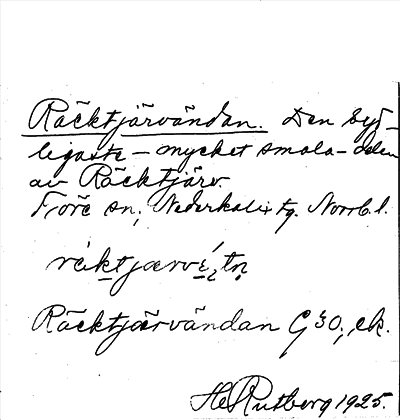 Räcktjärvändan. Den syd-
ligaste – mycket smala – delen
av Räcktjärv.
Töre sn, Nederkalix tg. Norrb. l.
Räcktjärvändan G 30, ek.
H Rutberg 1925.